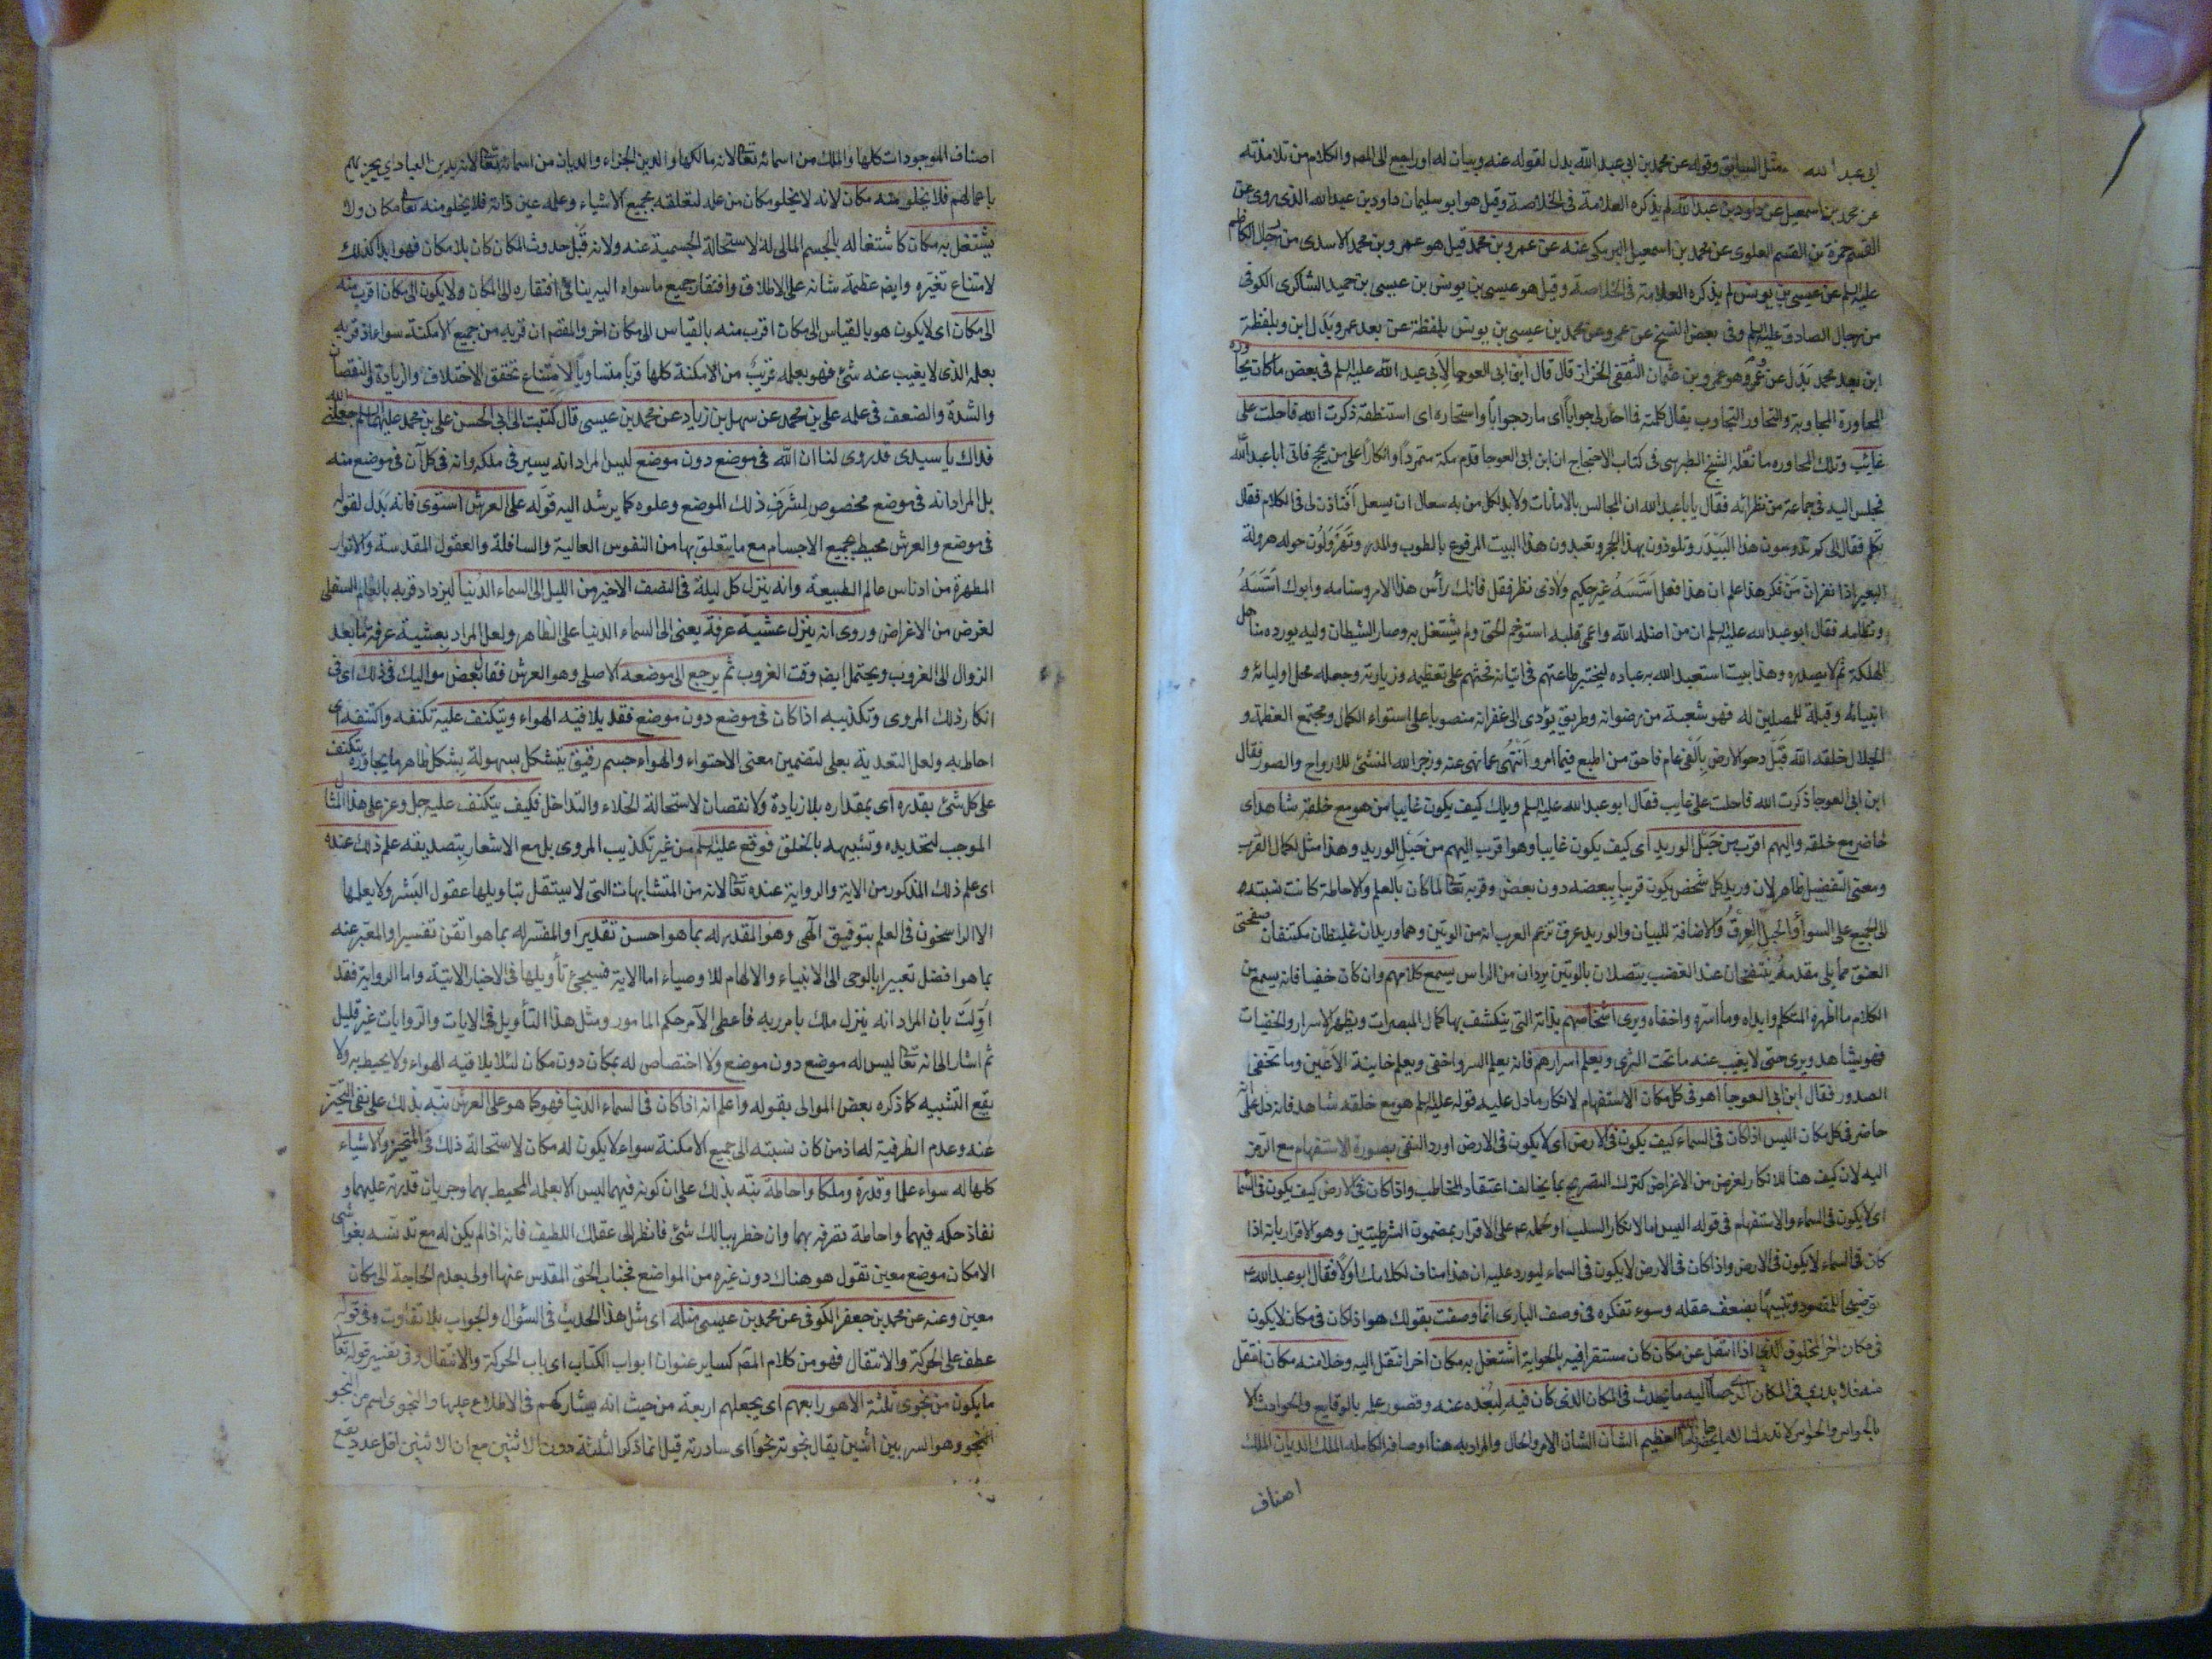 ابى عبد الله مثل السابق وقوله عن محمد بن ابى عبد الله بدل لقوله عنه وبيان له او راجع الى المص والكلام من تلامذته
عن محمد بن اسمعيل عن داود بن عبد الله لم يذكره العلامة فى الخلاصة وقيل هو ابو سليمان داود بن عبد الله الذى يروى عن
القسم حمزة بن القسم العلوى عن محمد بن اسمعيل البرمكى عنه عن عمرو بن محمد قيل هو عمرو بن محمد الاسدى من رجال الكاظم
عليه السلم عن عيسى بن يونس لم يذكره العلامة فى الخلاصة وقيل هو عيسى بن يونس بن عيسى بن حميد الشاكرى الكوفى
من رجال الصادق عليه السلم وفى بعض النسخ عن عمرو عن محمد بن عيسى بن يونس بلفظة عن بعد عمرو بدل ابن وبلفظة
ابن بعد محمد بدل عن وهو عمرو بن عثمان الثقفى الخزاز قال قال ابن ابى العوجا لابى عبد الله عليه السلم فى بعض ما كان يحاوره
المحاورة المجاوبة والتحاور التجاوب يقال كلمته فما احار لى جوابا اى ما رد جوابا واستحاره اى استنطقه ذكرت الله فاحلت على
غايب وتلك المحاوره ما نقله الشيخ الطبرسى فى كتاب الاحتجاج ان ابن ابى العوجا قدم مكة متمردا وانكارا على من يحج فاتى ابا عبد الله
فجلس اليه فى جماعة من نظرائه فقال يا ابا عبد الله ان المجالس بالامانات ولا بد لكل من به سعال ان يسعل افتاذن لى فى الكلام فقال
تكلم فقال الى كم تدوسون هذا البيدر وتلوذون بهذا الحجر وتعبدون هذا البيت المرفوع بالطوب والمدر وتهرولون حوله هرولة
البعير اذا نفر ان من فكر هذا علم ان هذا فعل اسسه غير حكيم ولا ذى نظر فقل فانك راس هذا الامر وسنامه وابوك اسسه
ونظامه فقال ابو عبد الله عليه السلم ان من اضله الله واعمى قلبه استوخم الحق ولم يشتغل به وصار الشيطان وليه يورده مناهل
الهلكة ثم لا يصدره وهذا بيت استعبد الله به عباده ليختبر طاعتهم فى اتيانه فحثهم على تعظيمه وزيارته وجعله محل اوليائه و
انبيائه وقبلة للمصلين له فهو شعبة من رضوانه وطريق يؤدى الى غفرانه منصوبا على استواء الكمال ومجتمع العظمة و
الجلال خلقه الله قبل دحو الارض بالفى عام فاحق من اطيع فيما امر وانتهى عما نهى عنه وزجر الله المنشئ للارواح والصور فقال
ابن ابى العوجا ذكرت الله فاحلت على غايب فقال ابو عبد الله عليه السلم ويلك كيف يكون غايبا من هو مع خلقه شاهد اى
حاضر مع خلقه واليهم اقرب من حبل الوريد اى كيف يكون غايبا وهو اقرب اليهم من حبل الوريد وهذا مثل لكمال القرب
ومعنى التفضيل ظاهر لان وريد كل شخص يكون قريبا ببعضه دون بعض وقربه تعالى لما كان بالعلم والاحاطة كانت نسبته
الى الجميع على السوا والحبل العرق والاضافة للبيان والوريد عرق تزعم العرب انه من الوتين وهما وريدان غليظان مكتنفان صفحتى
العنق مما يلى مقدمه ينتفخان عند الغضب يتصلان بالوتين يردان من الراس يسمع كلامهم وان كان خفيا فانه يسمع من
الكلام ما اظهره المتكلم وابداه وما اسره واخفاه ويرى اشخاصهم بذاته التى ينكشف بها كمال المبصرات ويظهر الاسرار والخفيات
فهو يشاهد ويرى حتى لا يغيب عنه ما تحت الثرى ويعلم اسرارهم فانه يعلم السر واخفى ويعلم خاينة الاعين وما تخفى
الصدور فقال ابن ابى العوجا اهو فى كل مكان الاستفهام لانكار ما دل عليه قوله عليه السلم هو مع خلقه شاهد فانه دل على انه
حاضر فى كل مكان اليس اذا كان فى السماء كيف يكون فى الارض اى لا يكون فى الارض اورد النفى بصورة الاستفهام مع الرمز
اليه لان كيف هنا للانكار لغرض من الاغراض كترك التصريح بما يخالف اعتقاد المخاطب واذا كان فى الارض كيف يكون فى السما
اى لا يكون فى السماء والاستفهام فى قوله اليس اما لانكار السلب او لحمله ع على الاقرار بمضمون الشرطيتين وهو الاقرار بانه اذا
كان فى السماء لا يكون فى الارض واذا كان فى الارض لا يكون فى السماء ليورد عليه ان هذا مناف لكلامك اولا فقال ابو عبد الله ع
توضيحا للمقصود وتنبيها بضعف عقله وسوء تفكره فى وصف البارى انما وصفت بقولك هو اذا كان فى مكان لا يكون
فى مكان اخر المخلوق الذى اذا انتقل عن مكان كان مستقرا فيه بالحواية اشتغل به مكان اخر انتقل اليه وخلا منه مكان انتقل
منه فلا يدرى فى المكان الذى صار اليه ما يحدث فى المكان الذى كان فيه لبعده عنه وقصور علمه بالوقايع والحوادث الا
بالحواس والحواس لا تدرك العظيم الشان الشان الامر والحال والمراد به هنا اوصافه الكاملة الملك الديان الملك
اصناف
اصناف الموجودات كلها والملك من اسمائه تعالى لانه مالكها والدين الجزاء والديان من اسمائه تعالى لانه يدين العباد اى يجزيهم
باعمالهم فلا يخلو منه مكان لانه لا يخلو مكان من علمه لتعلقه بجميع الاشياء وعلمه عين ذاته فلا يخلو منه تعالى مكان ولا
يشتغل به مكان كاشتغاله بالجسم المالى له لاستحالة الجسمية عنه ولانه قبل حدوث المكان كان بلا مكان فهو ابدا كذلك
لامتناع تغيره وايضا عظمة شانه على الاطلاق وافتقار جميع ما سواه اليه ينافى افتقاره الى المكان ولا يكون الى مكان اقرب منه
الى مكان اى لا يكون هو بالقياس الى مكان اقرب منه بالقياس الى مكان اخر والمقصود ان قربه من جميع الامكنة سواء اذ قربه
بعلمه الذى لا يغيب عنه شئ فهو بعلمه قريب من الامكنة كلها قربا متساويا لامتناع تحقق الاختلاف والزيادة والنقصان
والشدة والضعف فى علمه على بن محمد عن سهل بن زياد عن محمد بن عيسى قال كتبت الى ابى الحسن على بن محمد عليهما السلم جعلنى الله
فداك يا سيدى قد روى لنا ان الله فى موضع دون موضع ليس المراد انه يسير فى ملكه وانه فى كل آن فى موضع منه
بل المراد انه فى موضع مخصوص لشرف ذلك الموضع وعلوه كما يرشد اليه قوله على العرش استوى فانه بدل لقوله
فى موضع والعرش محيط بجميع الاجسام مع ما يتعلق بها من النفوس العالية والسافلة والعقول المقدسة والانوار
المطهرة من ادناس عالم الطبيعة وانه ينزل كل ليلة فى النصف الاخير من الليل الى السماء الدنيا ليزداد قربه بالعالم السفلى
لغرض من الاغراض وروى انه ينزل عشية عرفة يعنى الى السماء الدنيا على الظاهر ولعل المراد بعشية عرفة ما بعد
الزوال الى الغروب ويحتمل ايضا وقت الغروب ثم يرجع الى موضعه الاصلى وهو العرش فقال بعض مواليك فى ذلك اى فى
انكار ذلك المروى وتكذيبه اذا كان فى موضع دون موضع فقد يلاقيه الهواء ويتكنف عليه تكنفه واكتنفه اى
احاط به ولعل التعدية بعلى لتضمين معنى الاحتواء والهواء جسم رقيق يتشكل بسهولة بشكل ظاهر ما يجاوره يتكنف
على كل شئ بقدره اى بمقداره بلا زيادة ولا نقصان لاستحالة الخلاء والتداخل فكيف يتكنف عليه جل وعز على هذا المثال
الموجب لتحديده وتشبيهه بالخلق فوقع عليه السلم من غير تكذيب المروى بل مع الاشعار بتصديقه علم ذلك عنده
اى علم ذلك المذكور من الاية والرواية عنده تعالى لانه من المتشابهات التى لا يستقل بتاويلها عقول البشر ولا يعلمها
الا الراسخون فى العلم بتوفيق الهى وهو المقدر له بما هو احسن تقديرا والمفسر له بما هو اتقن تفسيرا والمعبر عنه
بما هو افضل تعبيرا بالوحى الى الانبياء والالهام للاوصياء اما الاية فسيجئ تأويلها فى الاخبار الاتية واما الرواية فقد
اولت بان المراد انه ينزل ملك بامر ربه فاعطى الآمر حكم المامور ومثل هذا التأويل فى الايات والروايات غير قليل
ثم اشار الى انه تعالى ليس له موضع دون موضع ولا اختصاص له بمكان دون مكان لئلا يلاقيه الهواء ولا يحيط به ولا
يقع التشبيه كما ذكره بعض الموالى بقوله واعلم انه اذا كان فى السماء الدنيا فهو كما هو على العرش نبه بذلك على نفى التحيز
عنه وعدم الظرفية له اذ من كان نسبته الى جميع الامكنة سواء لا يكون له مكان لاستحالة ذلك فى المتحيز والاشياء
كلها له سواء علما وقدرة وملكا واحاطة نبه بذلك على ان كونه فيهما ليس الا بعلمه المحيط بهما وجريان قدرته عليهما و
نفاذ حكمه فيهما واحاطة تصرفه بهما وان خطر ببالك شئ فانظر الى عقلك اللطيف فانه اذا لم يكن له مع تدنسه بغواشى
الامكان موضع معين تقول هو هناك دون غيره من المواضع فجناب الحق المقدس عنها اولى بعدم الحاجة الى مكان
معين وعنه عن محمد بن جعفر الكوفى عن محمد بن عيسى مثله اى مثل هذا الحديث فى السؤال والجواب بلا تفاوت وفى قوله
عطف على الحركة والانتقال فهو من كلام المصنف كساير عنوان ابواب الكتاب اى باب الحركة والانتقال وفى تفسير قوله تعالى
ما يكون من نجوى ثلثة الا هو رابعهم اى يجعلهم اربعة من حيث انه يشاركهم فى الاطلاع عليها والنجوى اسم من النجو
النجو وهو السر بين اثنين يقال نجوته نجوا اى ساررته قيل انما ذكر الثلثة دون الاثنين مع ان الاثنين اقل عدد يقع